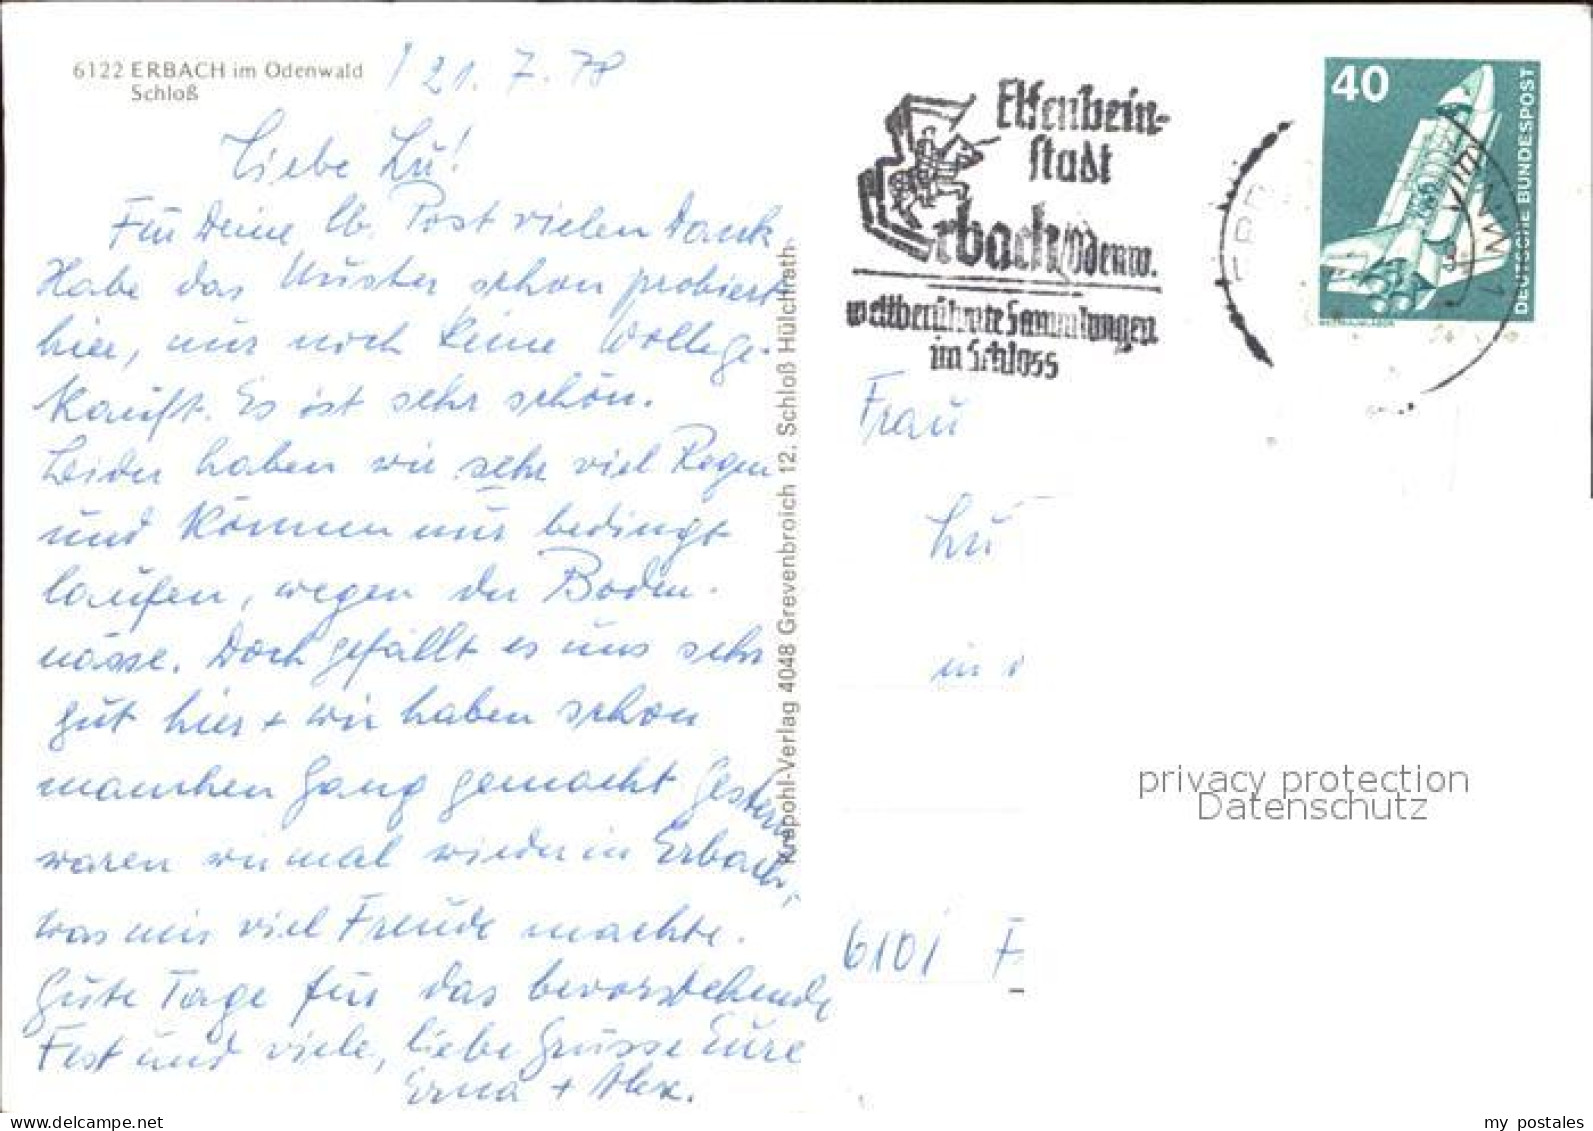 6122 ERBACH im Odenwald
Schloß
21. 7. 78
Liebe Lu!
Für Deine lb. Post vielen Dank.
Habe das Muster schon probiert
hier, nur noch keine Wolle ge-
kauft. Es ist sehr schön.
Leider haben wir sehr viel Regen
und können nur bedingt
laufen, wegen der Boden-
nässe. Doch gefällt es uns sehr
gut hier + wir haben schon
manchen Gang gemacht Gestern
waren wir mal wieder in Erbach,
was mir viel Freude machte.
Gute Tage für das bevorstehende
Fest und viele, liebe Grüsse Eure
Erna + Alex.
Krapohl-Verlag 4048 Grevenbroich 12, Schloß Hülchrath
Elfenbein-
stadt
Erbach/Odenw.
weltberühmte Sammlungen
im Schloss
40
DEUTSCHE BUNDESPOST
Frau
Lu
in
6101 F
privacy protection
Datenschutz
www.delcampe.net
my_postales